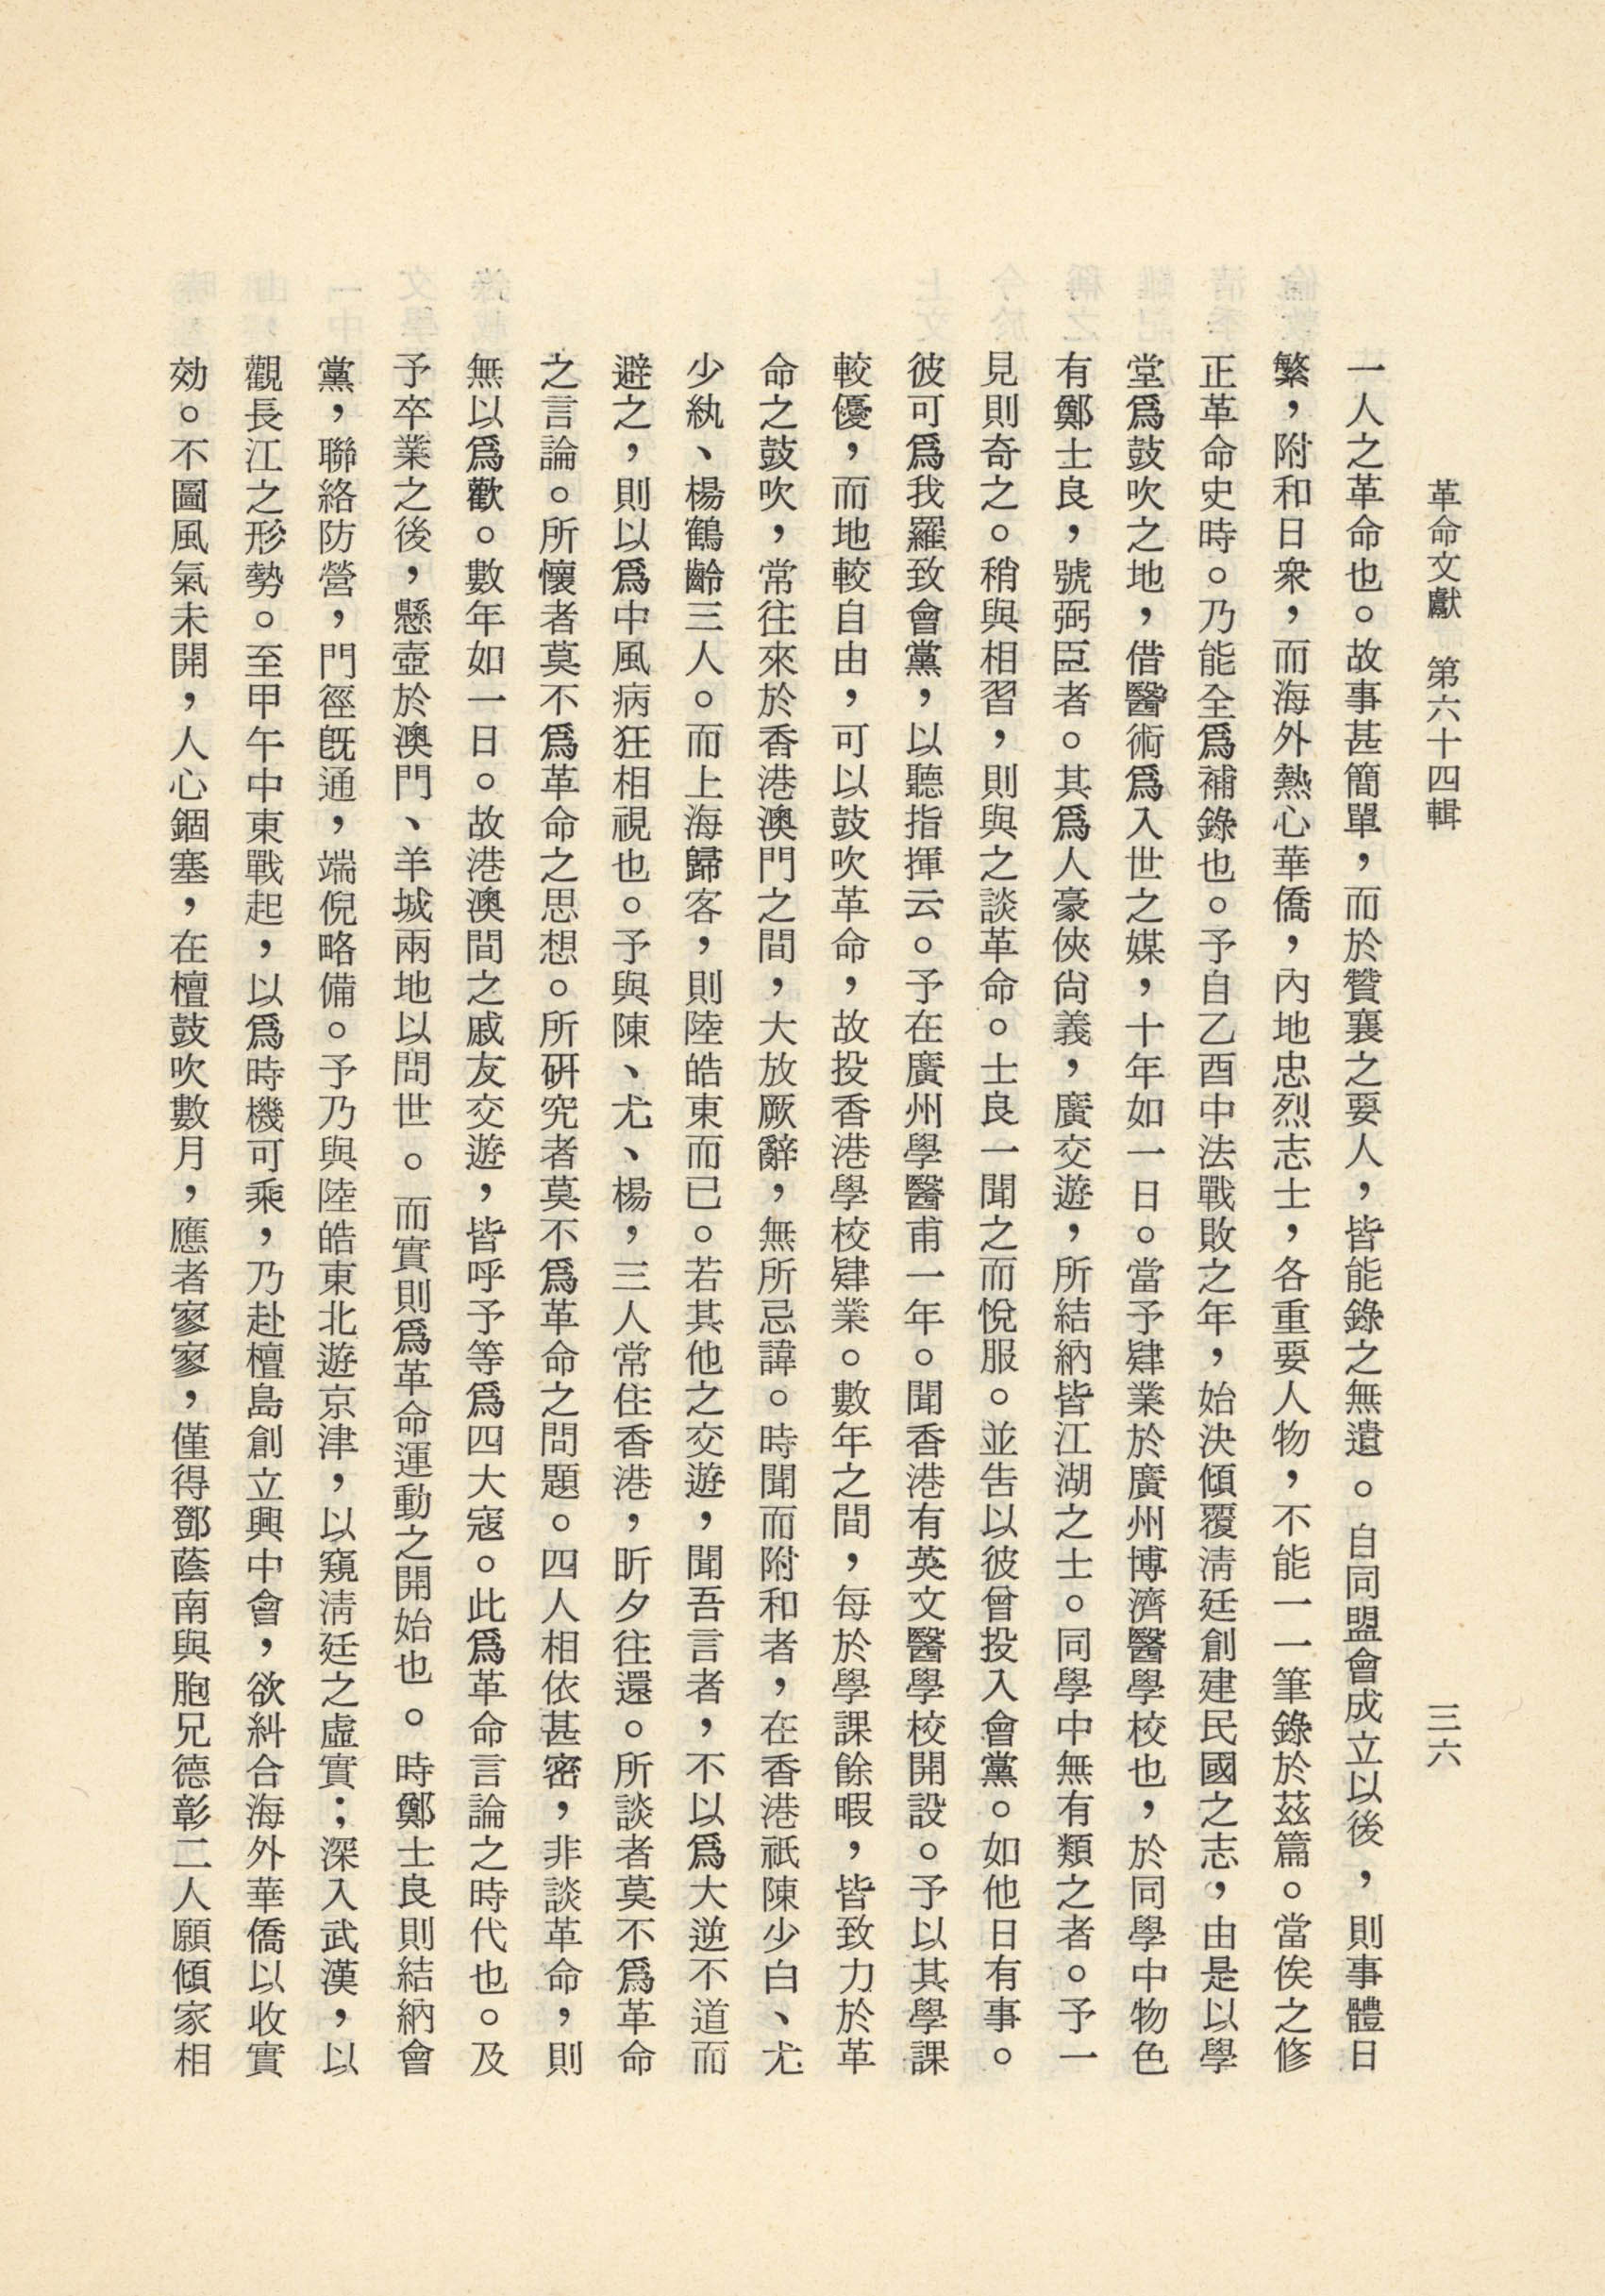 革命文獻　第六十四輯
三六
一人之革命也。故事甚簡單，而於贊襄之要人，皆能錄之無遺。自同盟會成立以後，則事體日
繁，附和日衆，而海外熱心華僑，內地忠烈志士，各重要人物，不能一一筆錄於茲篇。當俟之修
正革命史時。乃能全爲補錄也。予自乙酉中法戰敗之年，始決傾覆淸廷創建民國之志，由是以學
堂爲鼓吹之地，借醫術爲入世之媒，十年如一日。當予肄業於廣州博濟醫學校也，於同學中物色
有鄭士良，號弼臣者。其爲人豪俠尙義，廣交遊，所結納皆江湖之士。同學中無有類之者。予一
見則奇之。稍與相習，則與之談革命。士良一聞之而悅服。並吿以彼曾投入會黨。如他日有事。
彼可爲我羅致會黨，以聽指揮云。予在廣州學醫甫一年。聞香港有英文醫學校開設。予以其學課
較優，而地較自由，可以鼓吹革命，故投香港學校肄業。數年之間，每於學課餘暇，皆致力於革
命之鼓吹，常往來於香港澳門之間，大放厥辭，無所忌諱。時聞而附和者，在香港祇陳少白、尤
少紈、楊鶴齡三人。而上海歸客，則陸皓東而已。若其他之交遊，聞吾言者，不以爲大逆不道而
避之，則以爲中風病狂相視也。予與陳、尤、楊，三人常住香港，昕夕往還。所談者莫不爲革命
之言論。所懷者莫不爲革命之思想。所硏究者莫不爲革命之問題。四人相依甚密，非談革命，則
無以爲歡。數年如一日。故港澳間之戚友交遊，皆呼予等爲四大寇。此爲革命言論之時代也。及
予卒業之後，懸壺於澳門、羊城兩地以問世。而實則爲革命運動之開始也。時鄭士良則結納會
黨，聯絡防營，門徑旣通，端倪略備。予乃與陸皓東北遊京津，以窺淸廷之虛實；深入武漢，以
觀長江之形勢。至甲午中東戰起，以爲時機可乘，乃赴檀島創立興中會，欲糾合海外華僑以收實
効。不圖風氣未開，人心錮塞，在檀鼓吹數月，應者寥寥，僅得鄧蔭南與胞兄德彰二人願傾家相